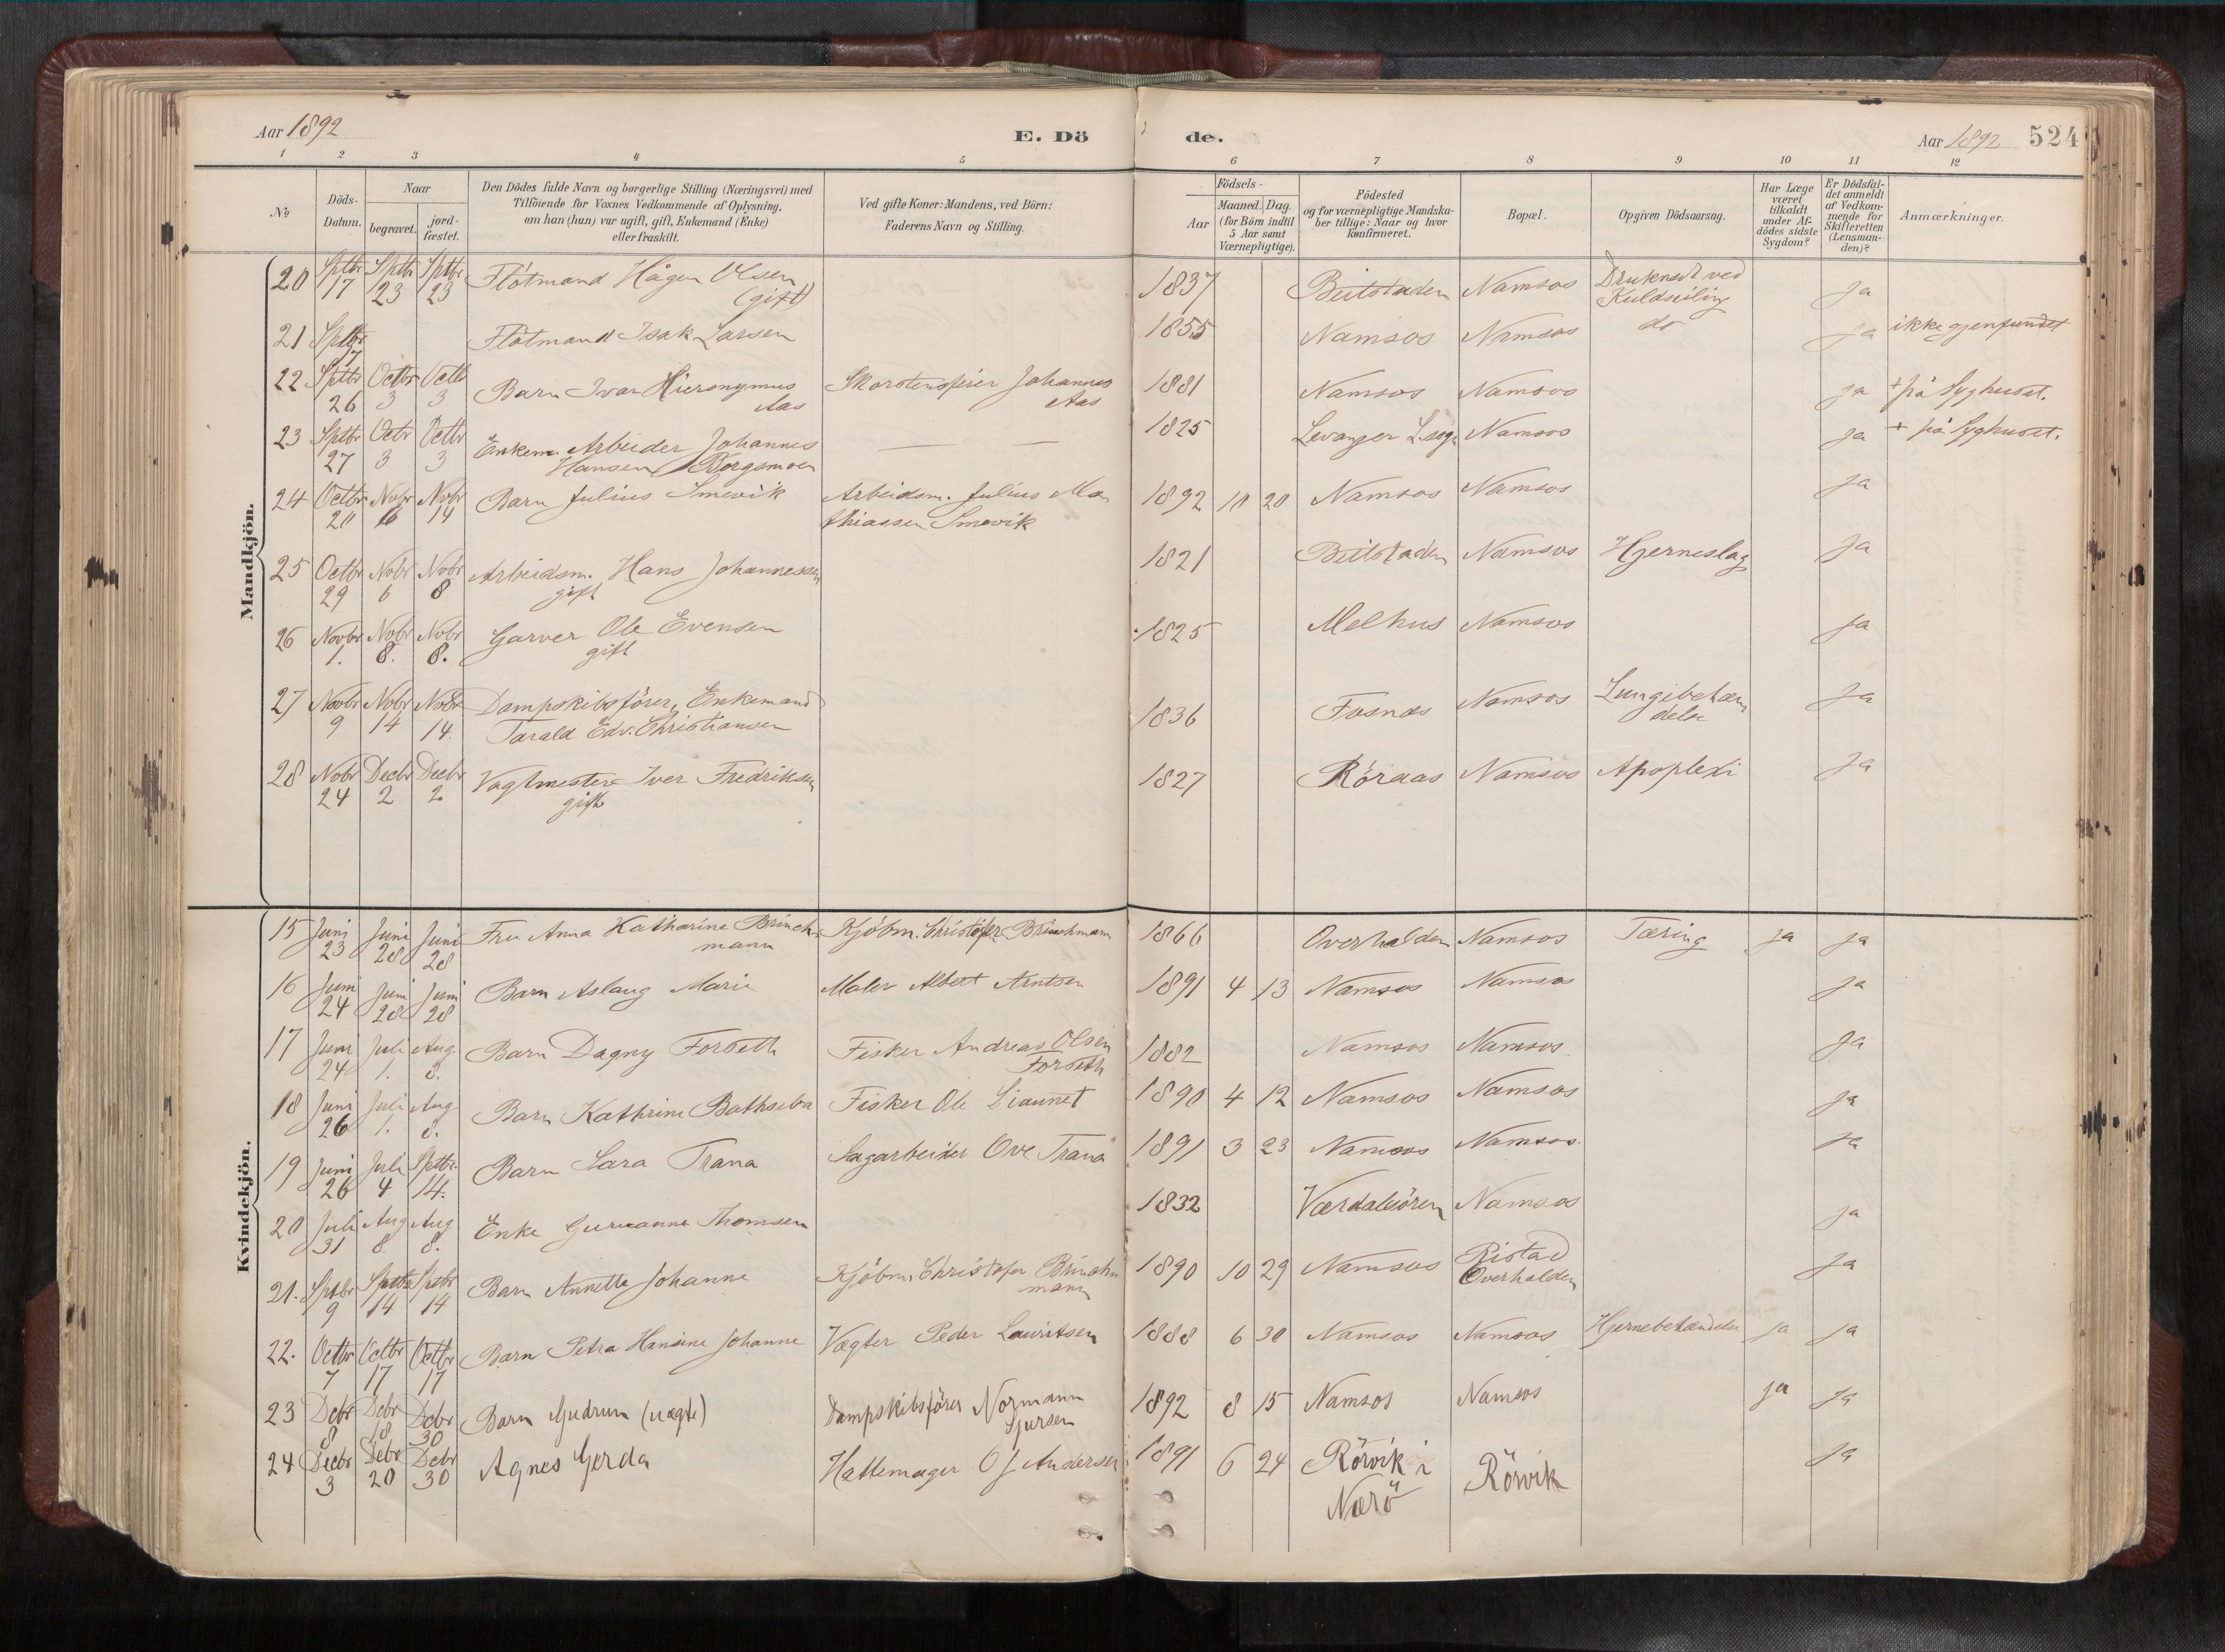 Aar 1892
E. Dö
de.
Aar 1892 524
1 2 3 4 5 6 7 8 9 10 11 12
No
Döds-
Datum.
Naar
begravet.
jord-
fæstet.
Den Dödes fulde Navn og borgerlige Stilling (Næringsvei) med
Tilföiende for Voxnes Vedkommende af Oplysning,
om han (hun) var ugift, gift, Enkemand (Enke)
eller fraskilt.
Ved gifte Koner: Mandens, ved Börn:
Faderens Navn og Stilling.
Födsels-
Aar
Maaned. Dag.
(for Börn indtil
5 Aar samt
Værnepligtige).
Födested
og for værnepligtige Mandska-
ber tillige: Naar og hvor
konfirmeret.
Bopæl.
Opgiven Dödsaarsag.
Har Læge
været
tilkaldt
under Af-
dödes sidste
Sygdom?
Er Dödsfal-
det anmeldt
af Vedkom-
mende for
Skifteretten
(Lensman-
den)?
Anmærkninger.
Mandkjön.
20 Sptbr 17 Sptbr 23 Sptbr 23 Flötmand Hågen Olsen 1837 Beitstaden Namsos Druknedt ved ja
(gift) Kuldseiling
21 Sptbr 17 Flötmand Isak Larsen 1855 Namsos Namsos do ja ikke gjenfundet
22 Sptbr 26 Octbr 3 Octbr 3 Barn Ivar Hieronymus Skorstensfeier Johannes 1881 Namsos Namsos ja + på Syghuset.
Aas Aas
23 Sptbr 27 Octr 3 Octbr 3 Enkem. Arbeider Johannes — — 1825 Levanger L.sogn Namsos ja + på Syghuset.
Hansen Borgsmoen
24 Octbr 20 Nvbr 6 Nvbr 14 Barn Julius Smevik Arbeidsm. Julius Ma 1892 10 20 Namsos Namsos ja
thiassen Smevik
25 Octbr 29 Nobr 6 Nobr 8 Arbeidsm. Hans Johannessen 1821 Beitstaden Namsos Hjerneslag ja
gift
26 Novbr 1. Nobr 8. Nobr 8. Garver Ole Evensen 1825 Melhus Namsos ja
gift
27 Novbr 9 Nobr 14 Nobr 14. Dampskibsförer, Enkemand 1836 Fosnæs Namsos Lungebetæn ja
Tarald Edv. Christiansen delse
28 Nobr 24 Decbr 2 Decbr 2 Vagtmester Iver Fredriksen 1827 Röraas Namsos Apoplexi ja
gift
Kvindekjön.
15 Juni 23 Juni 28 Juni 28 Fru Anna Katharine Brinch- Kjöbm. Christofer Brinchmann 1866 Overhalden Namsos Tæring ja ja
mann
16 Juni 24 Juni 28 Juni 28 Barn Aslaug Marie Maler Albert Arntsen 1891 4 13 Namsos Namsos ja
17 Juni 24 Juli 1. Aug 8. Barn Dagny Forseth Fisker Andreas Olsen 1882 Namsos Namsos ja
Forseth
18 Juni 26 Juli 1. Aug 8. Barn Kathrine Bathseba Fisker Ole Liaunet 1890 4 12 Namsos Namsos ja
19 Juni 26 Juli 4 Sptbr. 14. Barn Sara Trana Sagarbeider Ove Trana 1891 3 23 Namsos Namsos. ja
20 Juli 31 Aug 8. Aug 8. Enke Thomsen 1832 Værdalsören Namsos ja
21. Sptbr 9 Sptbr 14 Sptbr 14 Barn Annette Johanne Kjöbm. Christofer Brinch 1890 10 29 Namsos Ristad ja
mann Overhalden
22. Octbr 7 Octbr 17 Octbr 17 Barn Petra Hansine Johanne Vægter Peder Lauritsen 1888 6 30 Namsos Namsos Hjernebetændelse ja ja
23 Debr 8 Debr 18 Debr 30 Barn Gudrun (uægte) Dampskibsförer Normann 1892 8 15 Namsos Namsos ja ja
24 Decbr 3 Debr 20 Debr 30 Agnes Gerda Hattemager O J Andersen 1891 6 24 Rörvik i Rörvik ja
Nærö